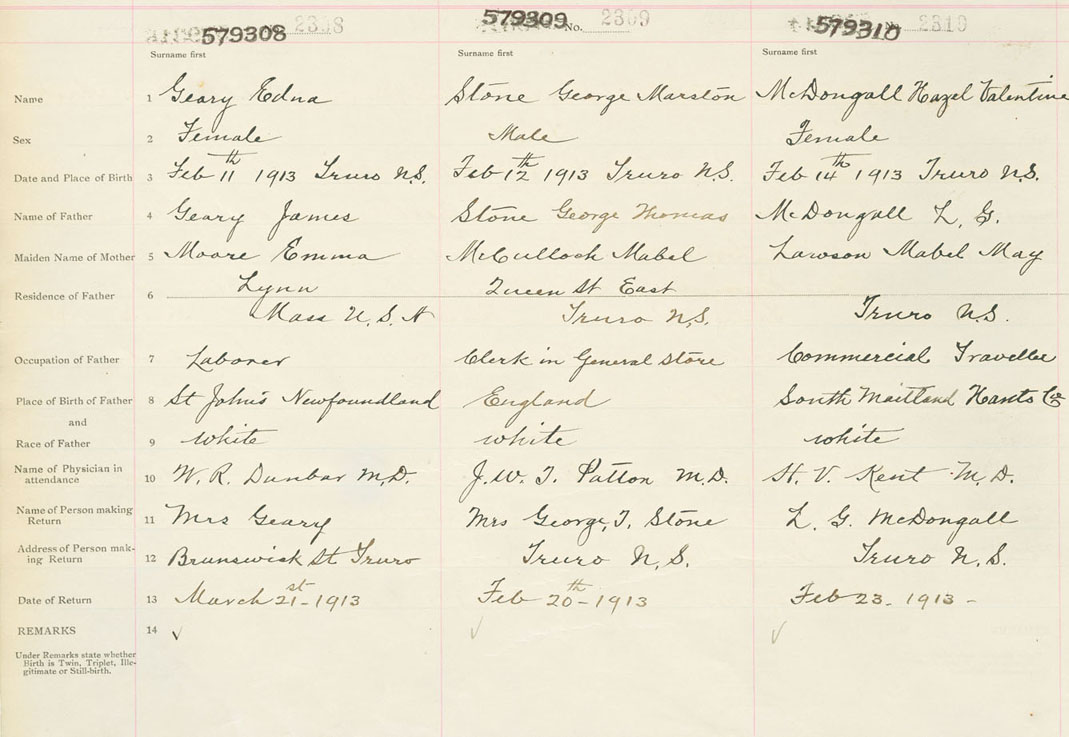 579308 2308 579309 No. 2309 579310 2310
Surname first Surname first Surname first
Name 1 Geary Edna Stone George Marston McDougall Hazel Valentine
Sex 2 Female Male Female
Date and Place of Birth 3 Feb 11th 1913 Truro N.S. Feb 12th 1913 Truro N.S. Feb 14th 1913 Truro N.S.
Name of Father 4 Geary James Stone George Thomas McDougall L. G.
Maiden Name of Mother 5 Moore Emma McCulloch Mabel Lawson Mabel May
Residence of Father 6 Lynn Queen St East
Mass U.S.A Truro N.S. Truro N.S.
Occupation of Father 7 Laborer Clerk in General Store Commercial Traveller
Place of Birth of Father 8 St John's Newfoundland England South Maitland Hants Co
and
Race of Father 9 white white white
Name of Physician in
attendance 10 W. R. Dunbar M.D. J. W. T. Patton M.D. H. V. Kent M.D.
Name of Person making
Return 11 Mrs Geary Mrs George T. Stone L. G. McDougall
Address of Person mak-
ing Return 12 Brunswick St Truro Truro N.S. Truro N.S.
Date of Return 13 March 21st - 1913 Feb 20th - 1913 Feb 23 - 1913 -
REMARKS 14
Under Remarks state whether
Birth is Twin, Triplet, Ille-
gitimate or Still-birth.